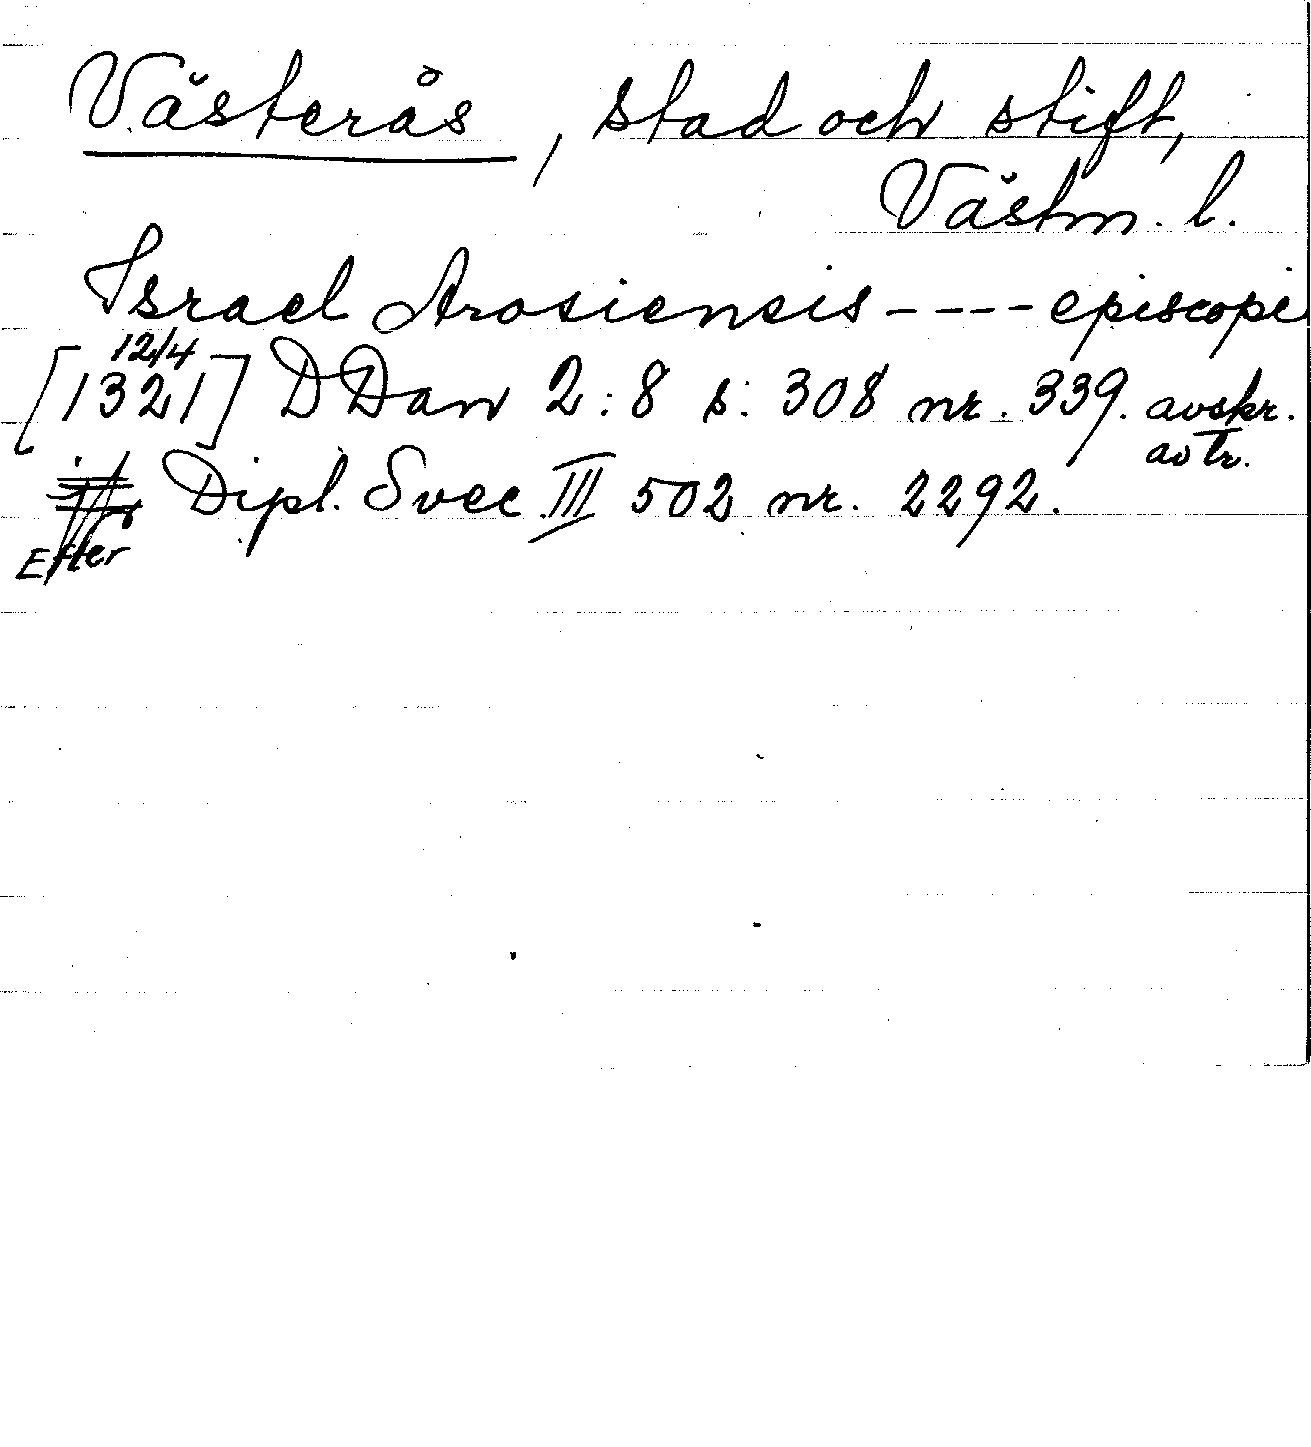 Västerås, stad och stift,
Västm. l.
Israel Arosiensis ---- episcopi
12/4
[1321] DDan 2:8 s. 308 nr. 339. avskr.
av tr.
Dipl. Svec III 502 nr. 2292.
Efter